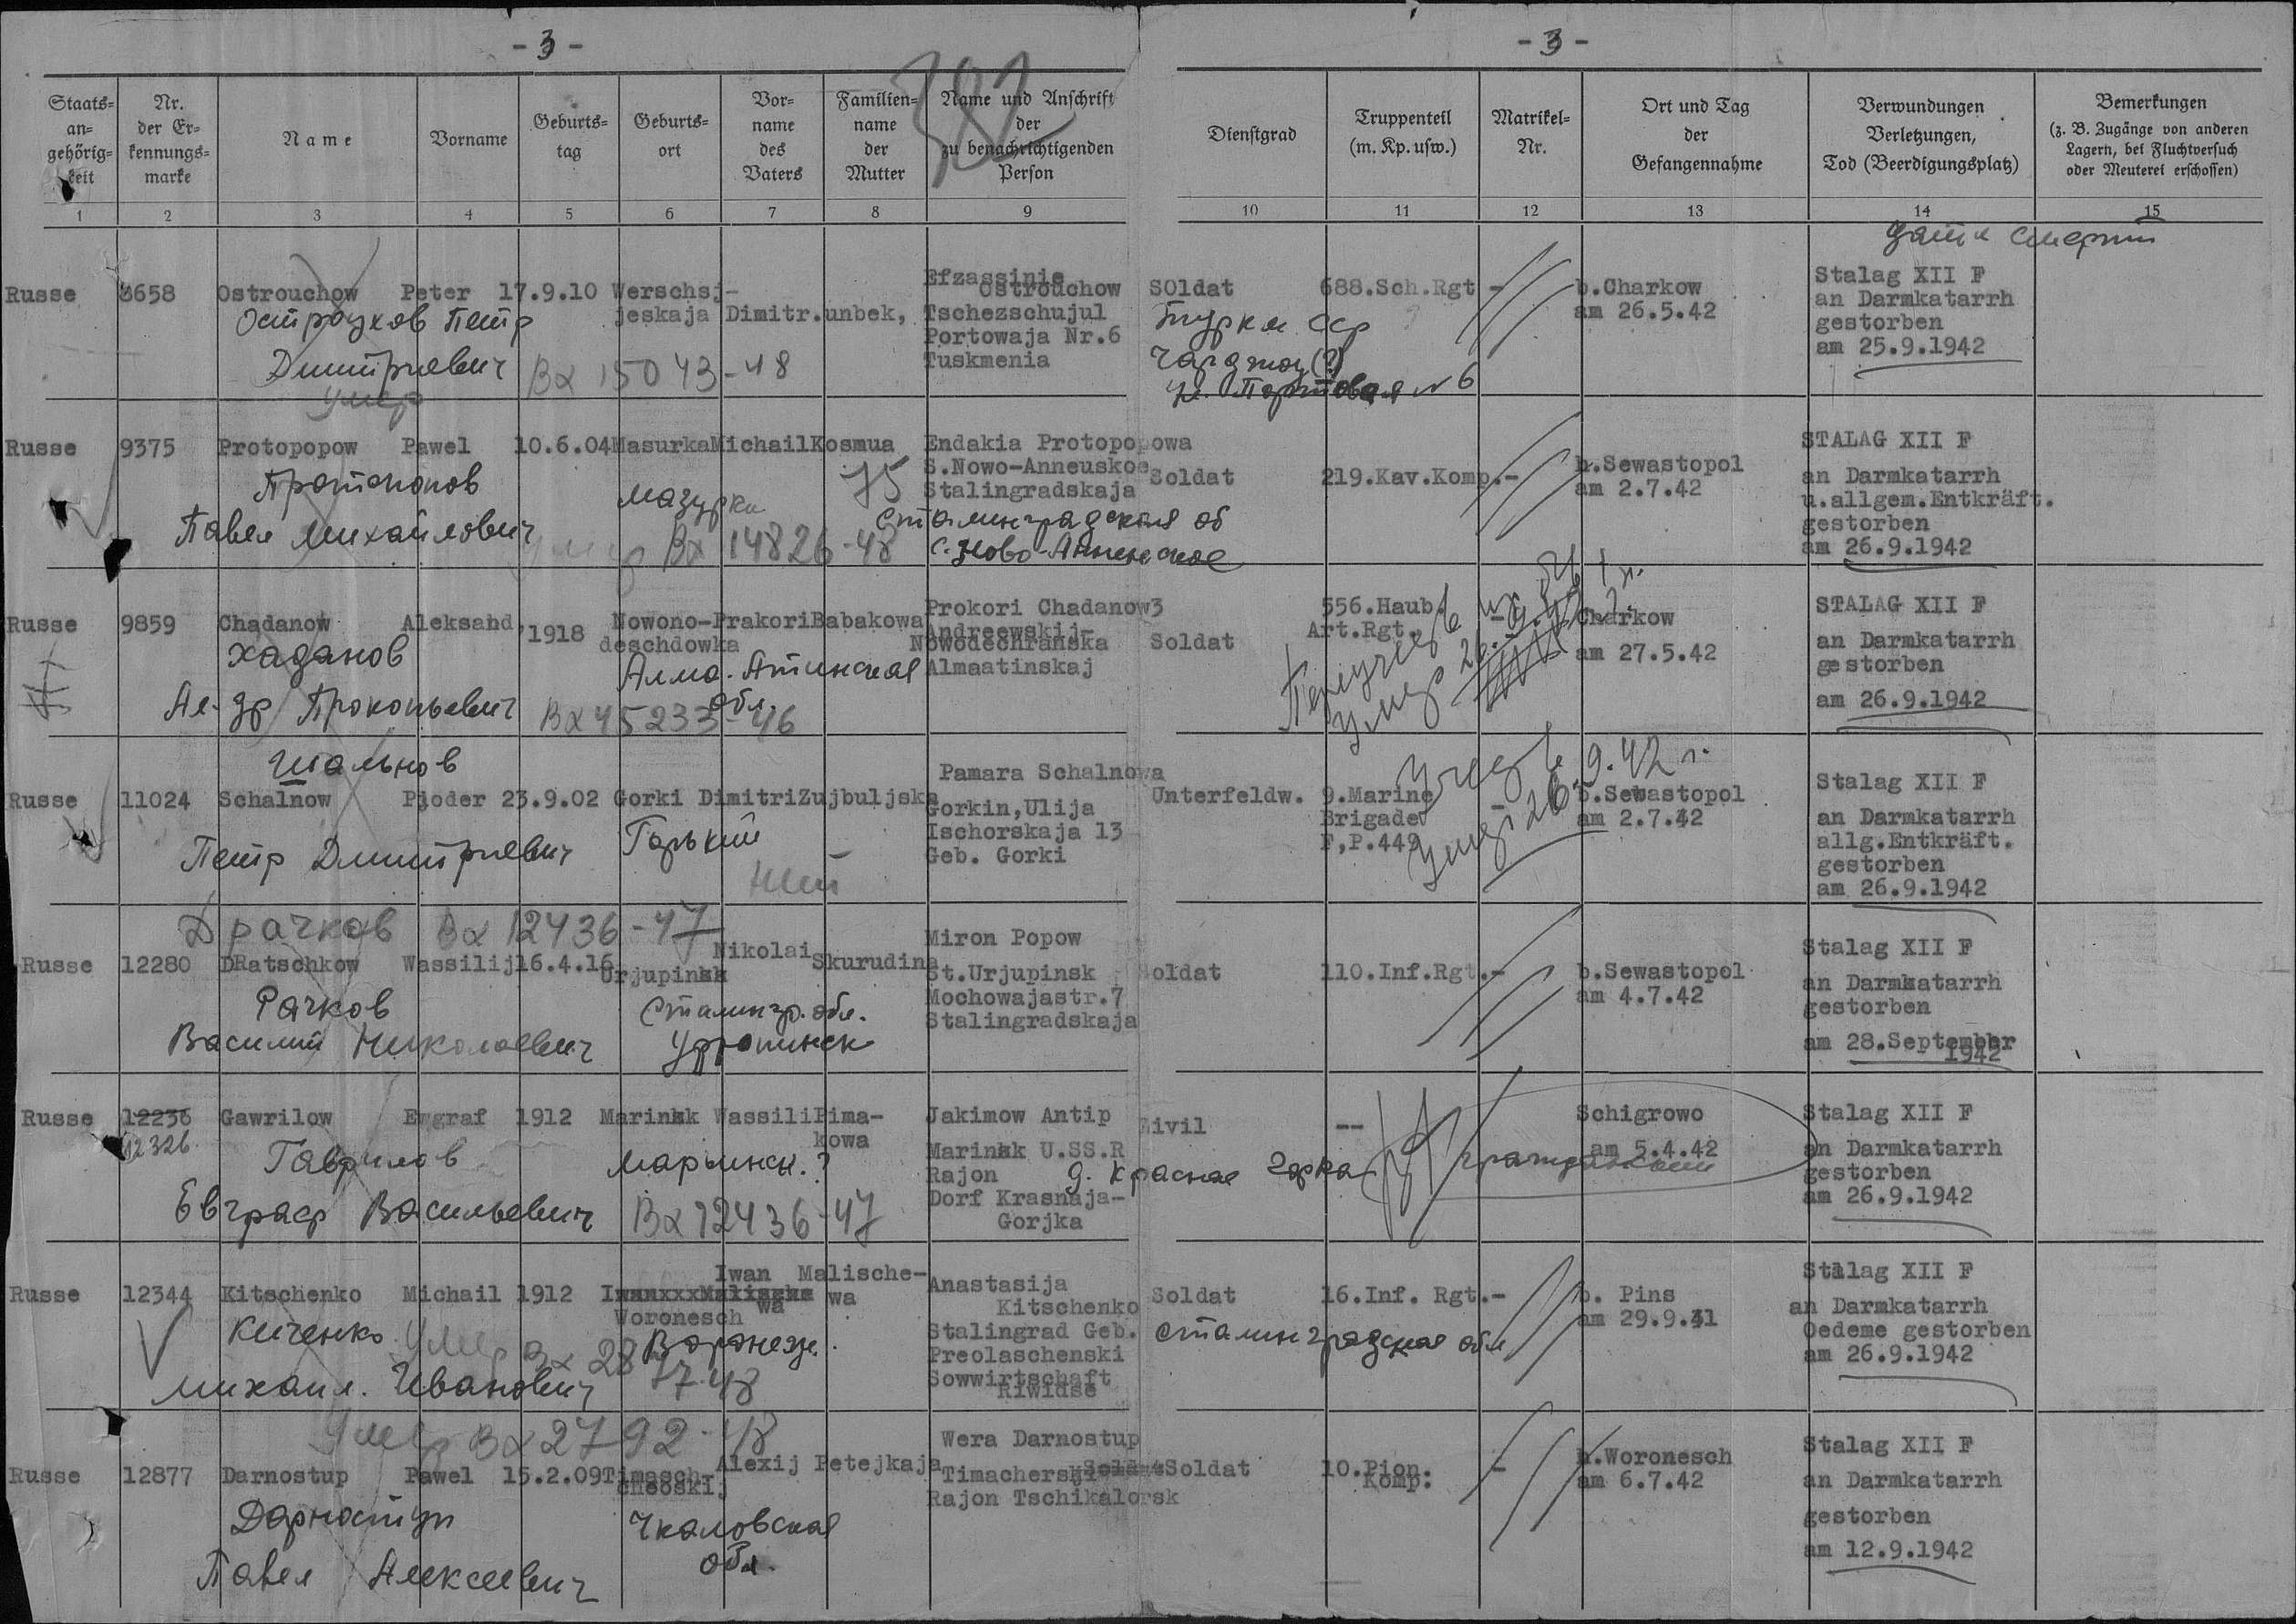 - 3 -
- 3 -
382
Staats=
an=
gehörig=
keit
Nr.
der Er=
kennungs=
marke
Name
Vorname
Geburts=
tag
Geburts=
ort
Vor=
name
des
Vaters
Familien=
name
der
Mutter
Name und Anschrift
der
zu benachrichtigenden
Person
Dienstgrad
Truppenteil
(m. Kp. usw.)
Matrikel=
Nr.
Ort und Tag
der
Gefangennahme
Verwundungen
Verletzungen,
Tod (Beerdigungsplatz)
Bemerkungen
(z. B. Zugänge von anderen
Lagern, bei Fluchtversuch
oder Meuterei erschossen)
1 2 3 4 5 6 7 8 9 10 11 12 13 14 15
дата смерти
Russe 8658 Ostrouchow Peter 17.9.10 Werschsj-
jeskaja Dimitr.unbek,
Efzassinie
Ostrouchow
Tschezschujul
Portowaja Nr.6
Tuskmenia
SOldat 688.Sch.Rgt - b.Charkow
am 26.5.42
Stalag XII F
an Darmkatarrh
gestorben
am 25.9.1942
Остроухов Петр
Дмитриевич
Вх 15043-48
умер
Туркм ССР
Чарджоу (?)
ул. Портовая №6
Russe 9375 Protopopow Pawel 10.6.04 Masurka Michail Kosmua
Endakia Protopopowa
S.Nowo-Anneuskoe
Stalingradskaja
Soldat 219.Kav.Komp.- b.Sewastopol
am 2.7.42
STALAG XII F
an Darmkatarrh
u.allgem.Entkräft.
gestorben
am 26.9.1942
Протопопов
Павел Михайлович
Мазурка
75
умер Вх 14826-48
Сталинградская об
с. Ново-Анненское
Russe 9859 Chadanow Aleksahd, 1918 Nowono-
deschdowka
Prakori Babakowa
Prokori Chadanow3
Andreewskij-
Nowodechranska
Almaatinskaj
Soldat 556.Haub.
Art.Rgt. - Charkow
am 27.5.42
STALAG XII F
an Darmkatarrh
gestorben
am 26.9.1942
Хаданов
Ал-др Прокопьевич
Алма-Атинская
обл.
Вх 45233-46
Умер 26.9.42
Russe 11024 Schalnow Pjoder 23.9.02 Gorki Dimitri Zujbuljska
Pamara Schalnowa
Gorkin,Ulija
Ischorskaja 13
Geb. Gorki
Unterfeldw. 9.Marine
Brigade
F,P.449
- b.Sewastopol
am 2.7.42
Stalag XII F
an Darmkatarrh
allg.Entkräft.
gestorben
am 26.9.1942
Шальнов
Петр Дмитриевич
Горький
Умер 26.9.42 г.
Драчков Вх 12436-47
Russe 12280 DRatschkow Wassilij 16.4.16 Urjupinsk
Nikolai Skurudina
Miron Popow
St.Urjupinsk
Mochowajastr.7
Stalingradskaja
Soldat 110.Inf.Rgt.- b.Sewastopol
am 4.7.42
Stalag XII F
an Darmkatarrh
gestorben
am 28.September
1942
Рачков
Василий Николаевич
Сталингр. обл.
Урюпинск
Russe 12236 Gawrilow Ewgraf 1912 Marinsk Wassili Pima-
kowa
12326
Jakimow Antip
Marinsk U.SS.R
Rajon
Dorf Krasnaja-
Gorjka
Zivil -- Schigrowo
am 5.4.42
Stalag XII F
an Darmkatarrh
gestorben
am 26.9.1942
Гаврилов
Евграф Васильевич
Марьинск.?
Вх 12436-47
д. Красная Горка
гражданский
Russe 12344 Kitschenko Michail 1912
Woronesch
Iwan Malische-
wa
Anastasija
Kitschenko
Stalingrad Geb.
Preolaschenski
Sowwirtschaft
Riwidse
Soldat 16.Inf. Rgt.- b. Pins
am 29.9.41
Stalag XII F
an Darmkatarrh
Oedeme gestorben
am 26.9.1942
Киченко
Михаил. Иванович
Умер Вх 2877-48
Воронеж.
Сталинградская обл
Умер Вх 2792-48
Russe 12877 Darnostup Pawel 15.2.09 Timasch-
cheoskij
Alexij Petejkaja
Wera Darnostup
Timacherskij
Rajon Tschikalorsk
Soldat 10.Pion.
Komp. - b.Woronesch
am 6.7.42
Stalag XII F
an Darmkatarrh
gestorben
am 12.9.1942
Дарноступ
Павел Алексеевич
Чкаловская
обл.